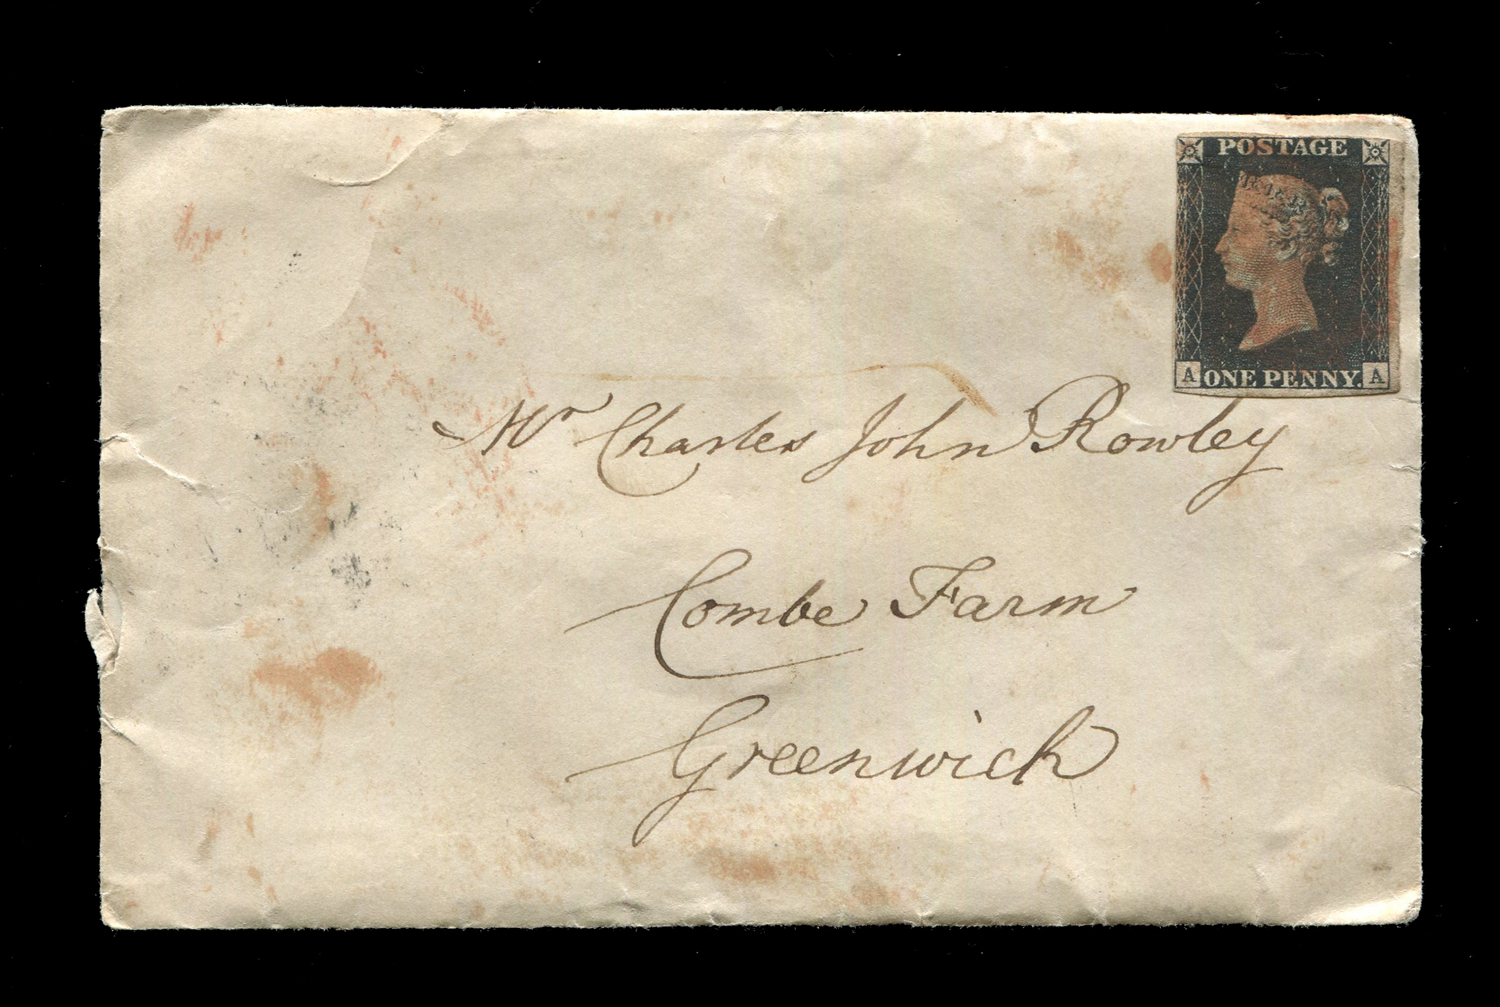 POSTAGE
A ONE PENNY. A
Mr Charles John Rowley
Combe Farm
Greenwich